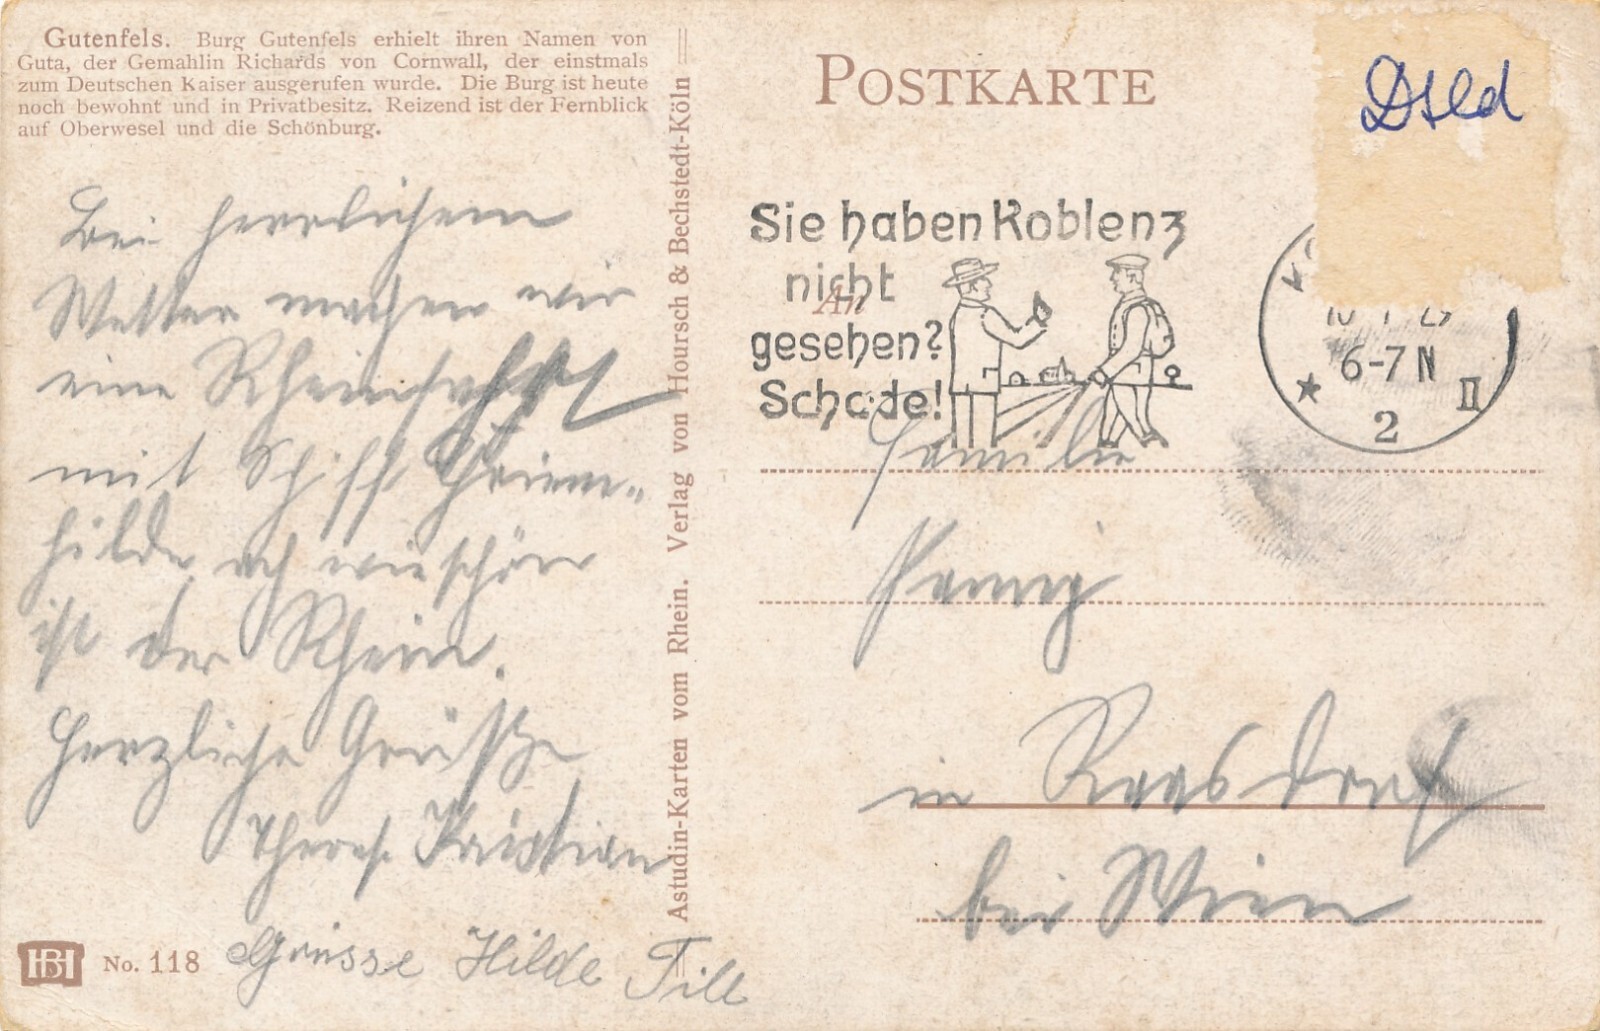 Gutenfels. Burg Gutenfels erhielt ihren Namen von
Guta, der Gemahlin Richards von Cornwall, der einstmals
zum Deutschen Kaiser ausgerufen wurde. Die Burg ist heute
noch bewohnt und in Privatbesitz. Reizend ist der Fernblick
auf Oberwesel und die Schönburg.
Bei herrlichem
Wetter machen wir
eine Rheinfahrt
mit Schiff Chriem-
hilde ach wie schön
ist der Rhein.
Herzliche Grüße
Therese Kristian
Grüsse Hilde Till
No. 118
HB
Astudin-Karten vom Rhein. Verlag von Hoursch & Bechstedt-Köln
POSTKARTE
Dsld
Sie haben Koblenz
nicht
An
gesehen?
Schade!
6-7 N
2 II
Familie
in Raasdorf
bei Wien